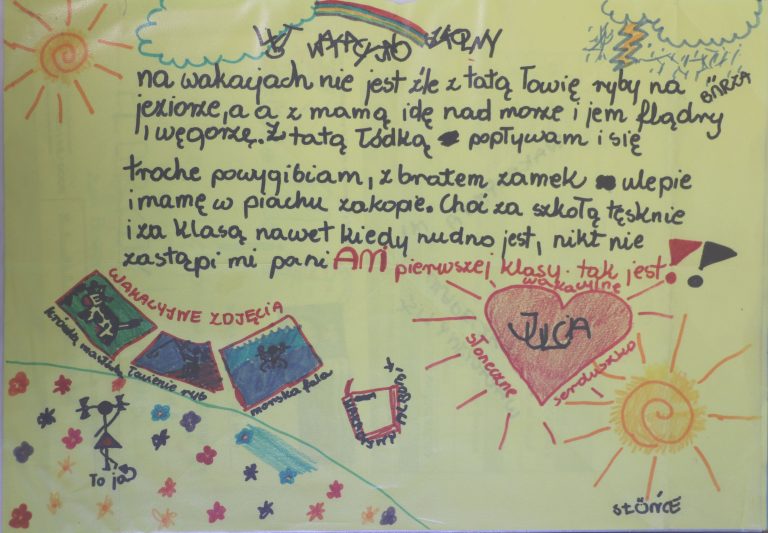 BÖRZA
na wakacjach nie jest źle z tatą łowię ryby na
jeziorze, a a z mamą idę nad morze i jem flądry
i węgorzę. Z tatą łódką popływam i się
troche powygibiam, z bratem zamek ulepie
i mamę w piachu zakopie. Choć za szkołą tęsknie
i za klasą nawet kiedy nudno jest, nikt nie
zastąpi mi pani AMI pierwszej klasy. tak jest!!
WAKACYJNE ZDJĘCIA
łowienie ryb
morska fala
wakacyjne
słoneczne
serduszko
JULCIA
To ja
SŁÓŃCE